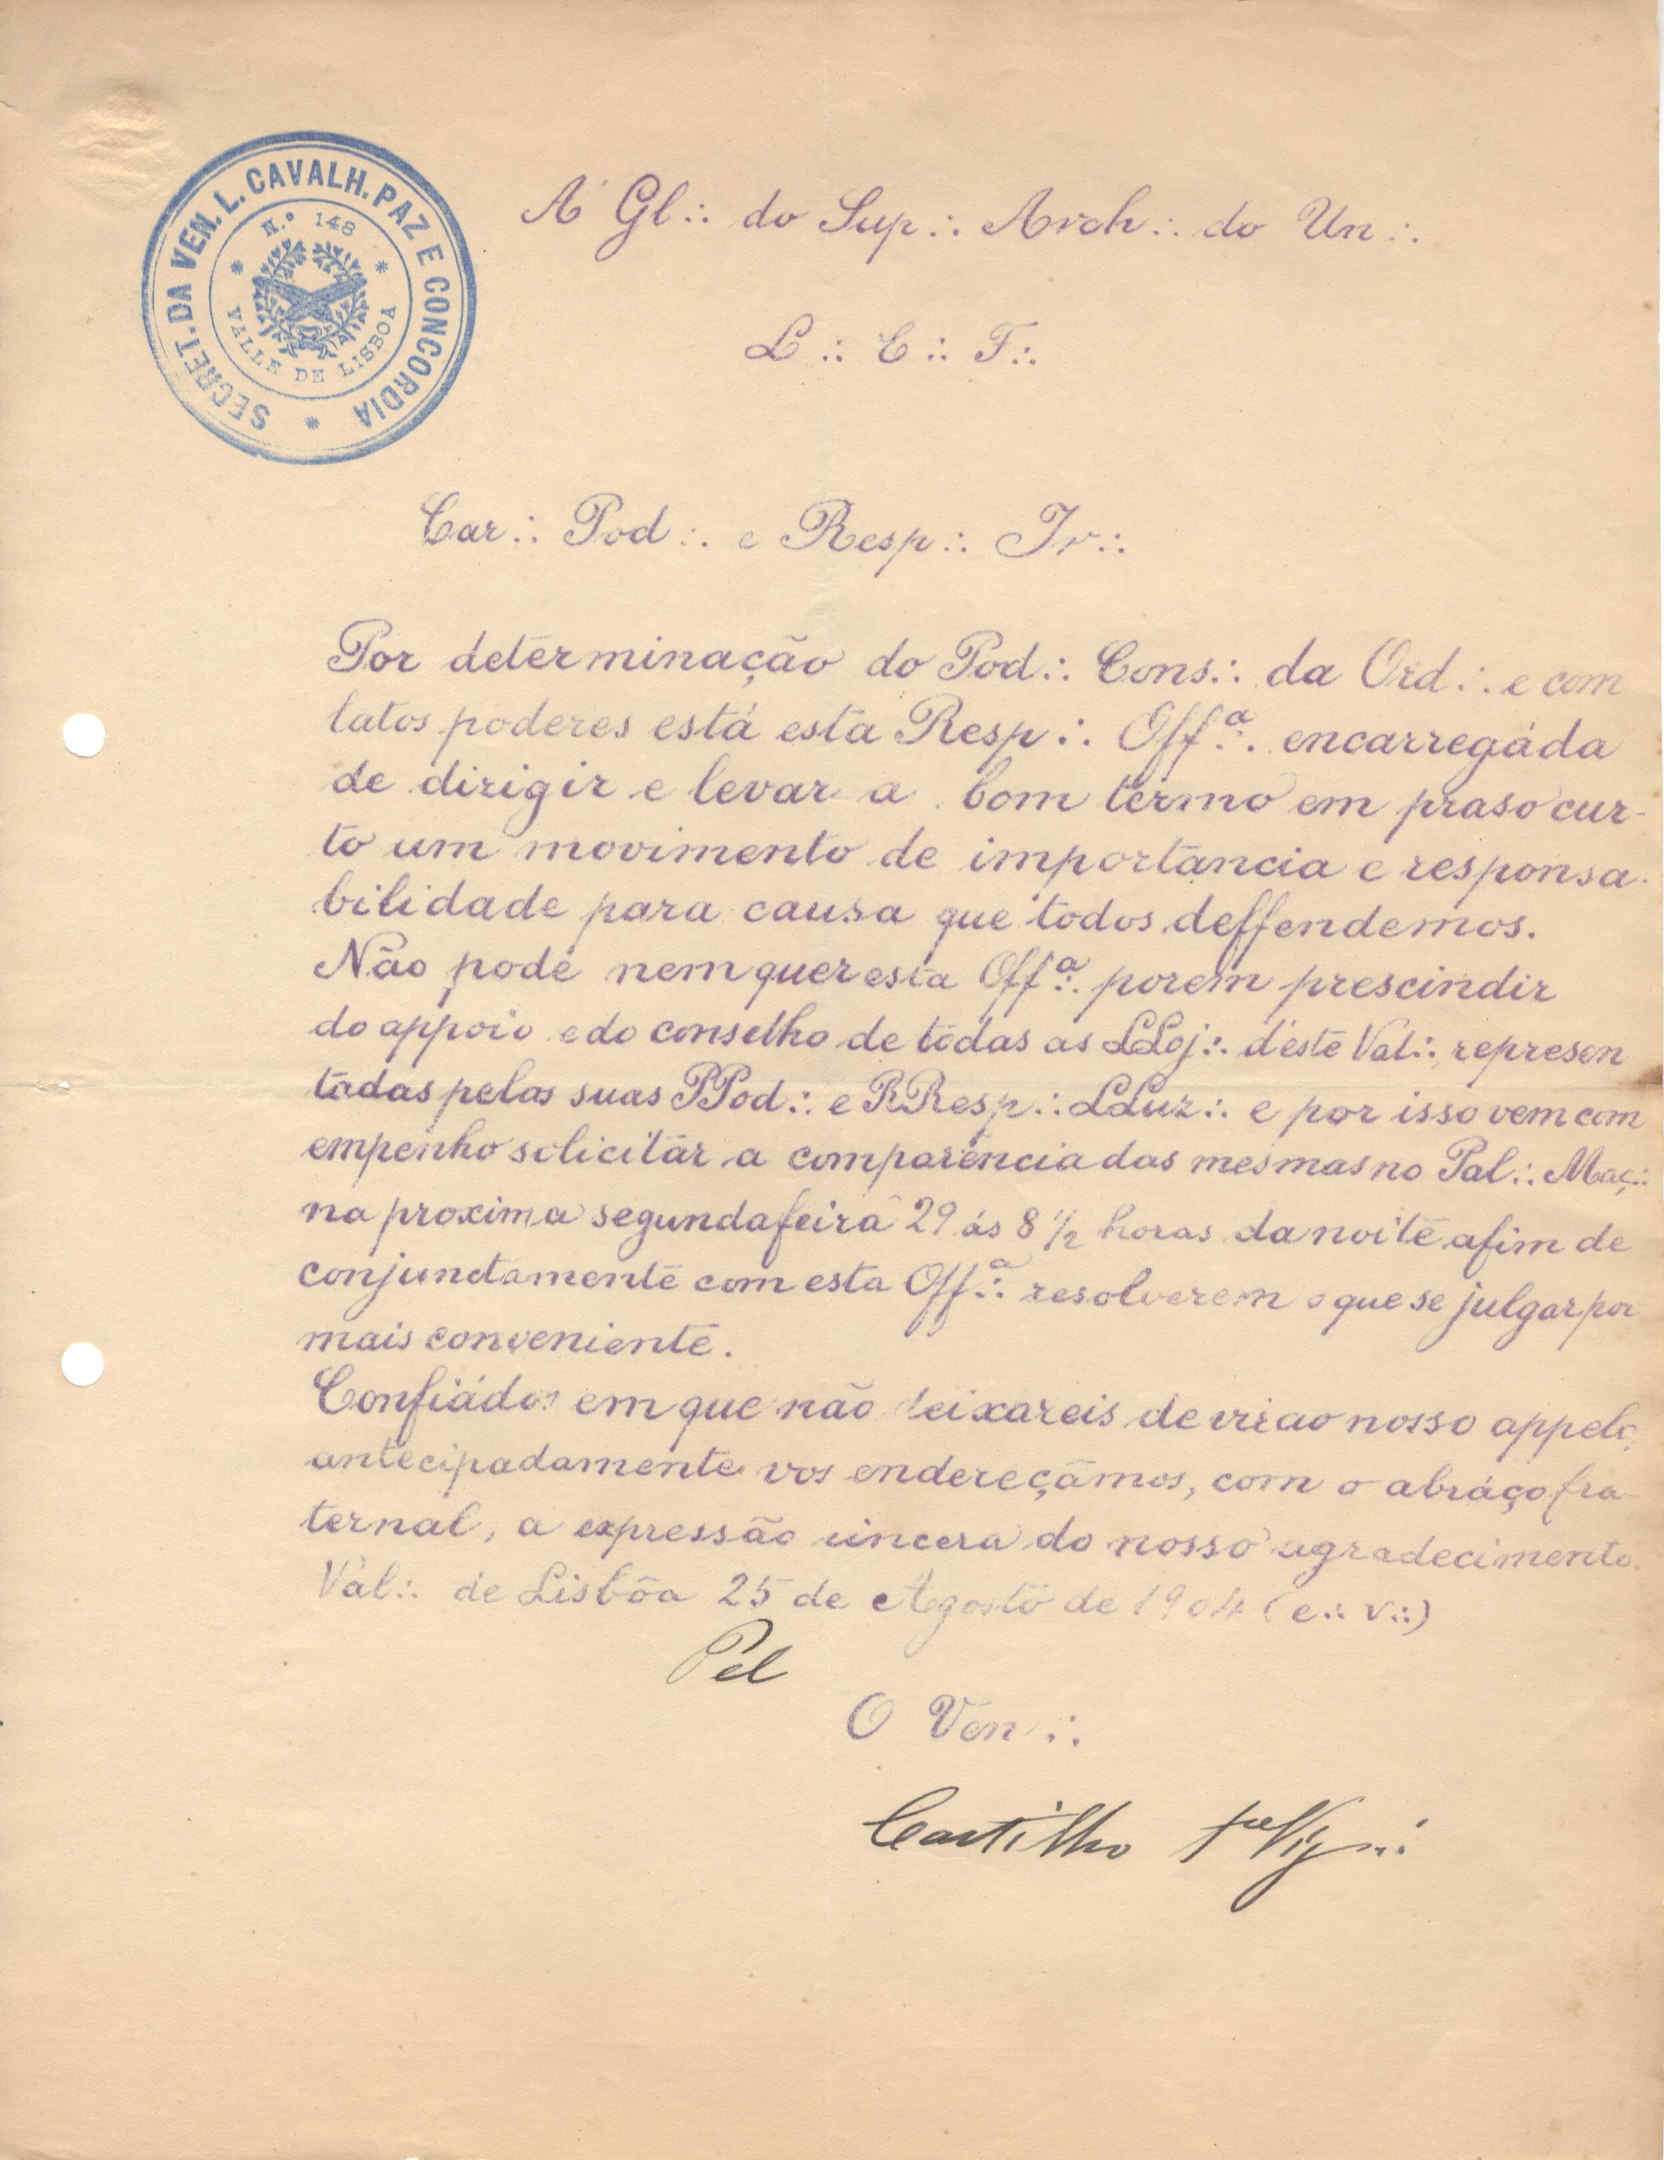 SECRET. DA VEN. L. CAVALH. PAZ E CONCORDIA
N.º 148
VALLE DE LISBOA
A Gl∴ do Sup∴ Arch∴ do Un∴
L∴ E∴ F∴
Car∴ Pod∴ e Resp∴ Ir∴
Por determinação do Pod∴ Cons∴ da Ord∴ e com
latos poderes está esta Resp∴ Off.ª∴ encarregáda
de dirigir e levar a bom termo em praso cur-
to um movimento de importancia e responsa-
bilidade para causa que todos deffendemos.
Não pode nem quer esta Off.ª∴ porem prescindir
do appoio e do conselho de todas as LLoj∴ d'este Val∴ represen
tadas pelas suas PPod∴ e RResp∴ LLuz∴ e por isso vem com
empenho solicitar a comparencia das mesmas no Pal∴ Maç∴
na proxima segunda feira 29 ás 8 1/2 horas da noite afim de
conjunctamente com esta Off.ª∴ resolverem o que se julgar por
mais conveniente.
Confiádos em que não deixareis de vir ao nosso appelo,
antecipadamente vos endereçâmos, com o abráço fra-
ternal, a expressão sincera do nosso agradecimento.
Val∴ de Lisbôa 25 de Agosto de 1904 (e∴ v∴)
Pel
O Ven∴
Castilho